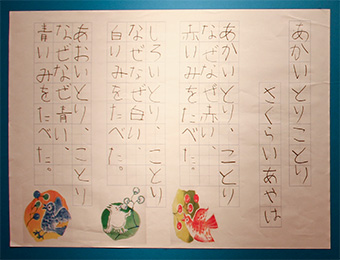 あかいとりことり
さくらいあやは
あかいとり、ことり
なぜなぜ赤い、
赤いみをたべた。
しろいとり、ことり
なぜなぜ白い、
白いみをたべた。
あおいとり、ことり
なぜなぜ青い、
青いみをたべた。